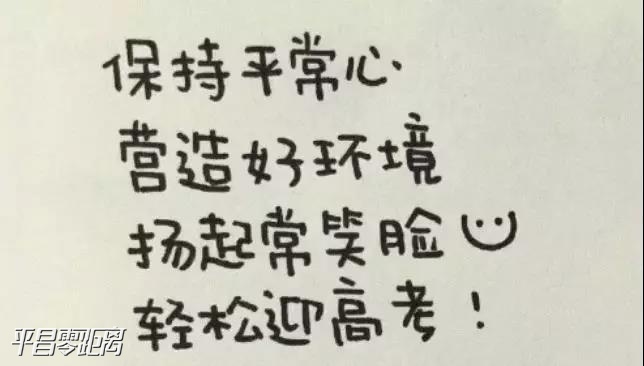 保持平常心
营造好环境
扬起常笑脸
轻松迎高考！
平昌零距离